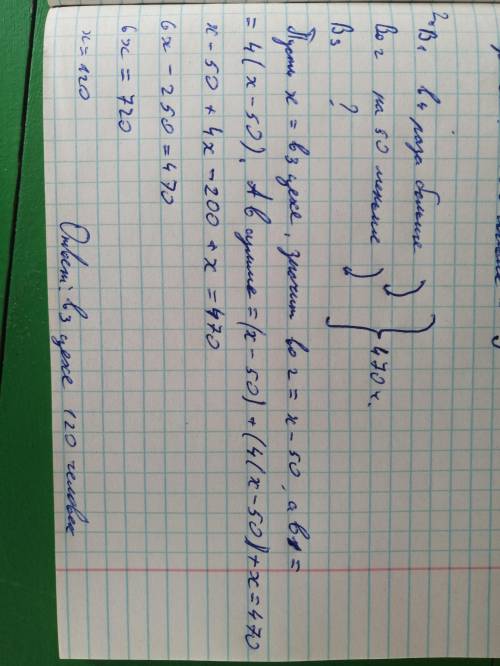 В1 в 4 раза больше
Во 2 на 50 меньше } } 470 ч.
В3 ?
Пусть x = в 3 цехе, значит во 2 = x - 50, а в 1 =
= 4(x - 50). А в сумме = (x - 50) + (4(x - 50)) + x = 470
x - 50 + 4x - 200 + x = 470
6x - 250 = 470
6x = 720
x = 120
Ответ: в 3 цехе 120 человек